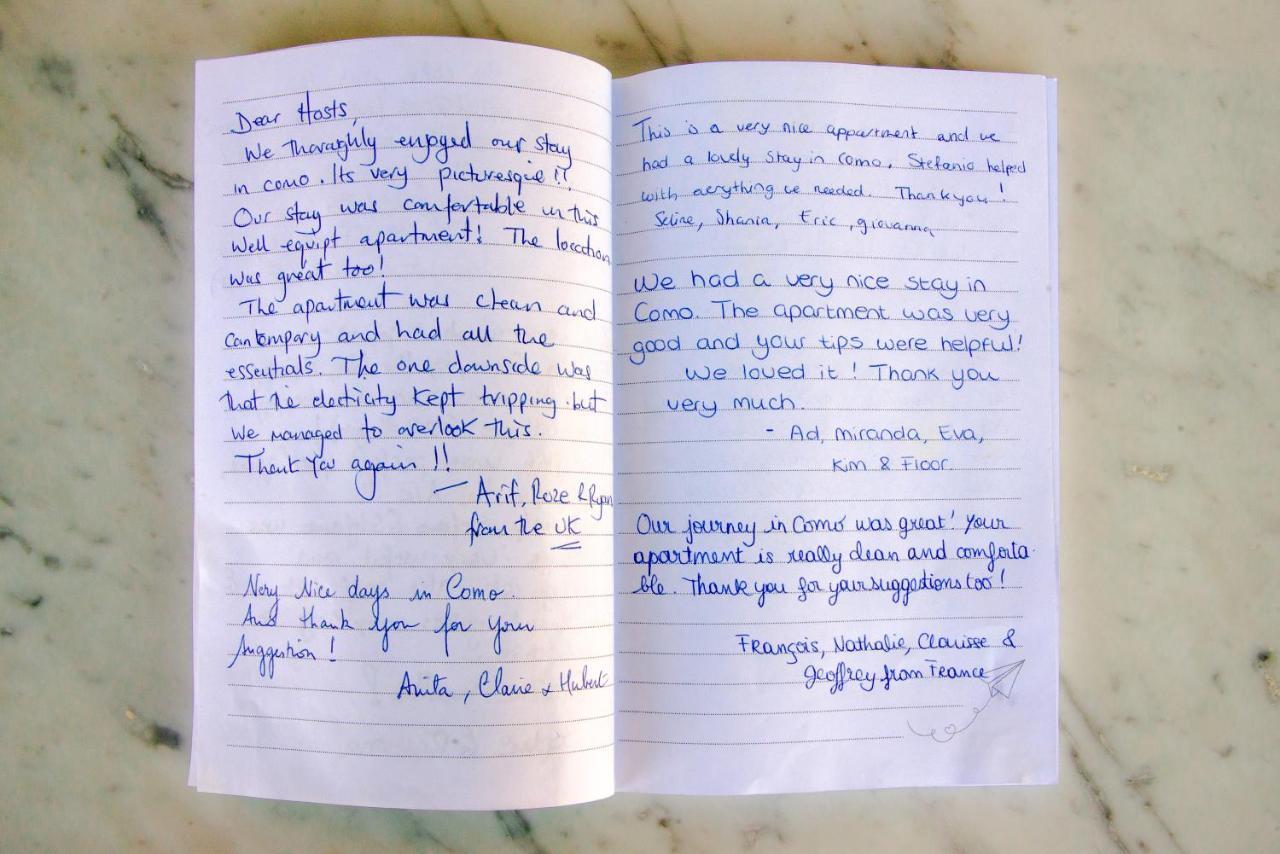 Dear Hosts,
We thoroughly enjoyed our stay
in como. Its very picturesque!!
Our stay was comfortable in this
well equipt apartment! The location
was great too!
The apartment was clean and
contempary and had all the
essentials. The one downside was
that the electicity kept tripping but
we managed to overlook this.
Thank you again!!
— Arif, Roze & Ryan
from the UK
Very Nice days in Como.
And thank you for your
suggestion!
Anita, Claire & Hubert
This is a very nice appartment and we
had a lovely stay in Como. Stefania helped
with aerything we needed. Thank you!
Seline, Shania, Eric, giovanna
We had a very nice stay in
Como. The apartment was very
good and your tips were helpful!
We loved it! Thank you
very much.
- Ad, Miranda, Eva,
Kim & Floor.
Our journey in Como was great! Your
apartment is really clean and comforta-
ble. Thank you for your suggestions too!
François, Nathalie, Clarisse &
Geoffrey from France